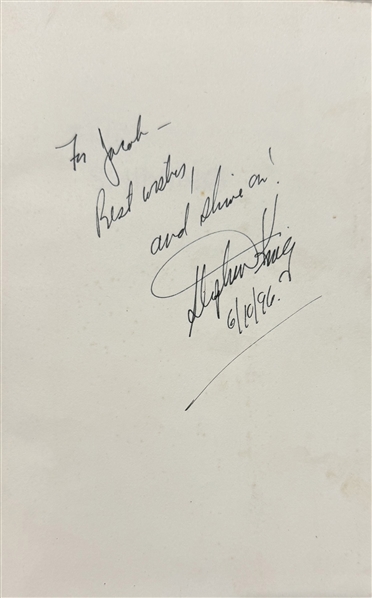 For Jacob —
Best wishes,
and shine on!
Stephen King
6/10/96.